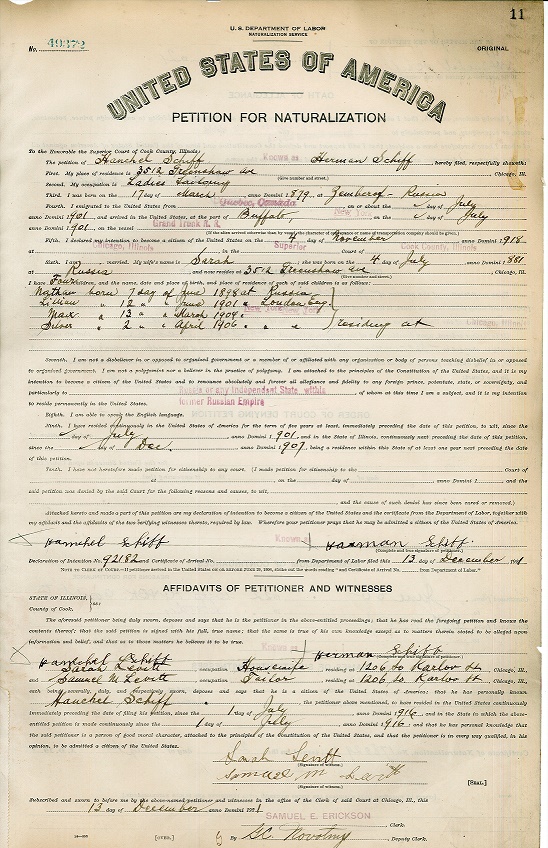 11
U. S. DEPARTMENT OF LABOR
NATURALIZATION SERVICE
No. 49372
ORIGINAL
UNITED STATES OF AMERICA
PETITION FOR NATURALIZATION
To the Honorable the Superior Court of Cook County, Illinois:
The petition of Hanchel Schiff Known as Herman Schiff, hereby filed, respectfully sheweth:
First. My place of residence is 3512 Greenshaw ave Chicago, Ill.
(Give number and street.)
Second. My occupation is Ladies Tailoring
Third. I was born on the 17 day of March, anno Domini 1879, at Russia
Fourth. I emigrated to the United States from Quebec, Canada on or about the day of July
anno Domini 1901, and arrived in the United States, at the port of Buffalo, New York on the day of July
anno Domini 1901, on the vessel Grand Trunk R. R.
(If the alien arrived otherwise than by vessel, the character of conveyance or name of transportation company should be given.)
Fifth. I declared my intention to become a citizen of the United States on the 4 day of November anno Domini 1918
at Chicago, Illinois, in the Superior Court of Cook County, Illinois
Sixth. I am married. My wife's name is Sarah, she was born on the 4 day of July anno Domini 1881
at Russia, and now resides at 3512 Greenshaw ave
(Give number and street.)
I have Four children, and the name, date and place of birth, and place of residence of each of said children is as follows:
Nathan born 7 day of June 1898 at Russia
Lilian " 12 " " June 1901 " London Eng.
Max " 13 " " March 1904 " New York
Silver " 2 " " April 1906 " " residing at Chicago, Illinois
Seventh. I am not a disbeliever in or opposed to organized government or a member of or affiliated with any organization or body of persons teaching disbelief in or opposed
to organized government. I am not a polygamist nor a believer in the practice of polygamy. I am attached to the principles of the Constitution of the United States, and it is my
intention to become a citizen of the United States and to renounce absolutely and forever all allegiance and fidelity to any foreign prince, potentate, state, or sovereignty, and
particularly to or any Independent State within the former Russian Empire, of whom at this time I am a subject, and it is my intention
to reside permanently in the United States.
Eighth. I am able to speak the English language.
Ninth. I have resided continuously in the United States of America for the term of five years at least, immediately preceding the date of this petition, to wit, since the
day of July, anno Domini 1901, and in the State of Illinois, continuously next preceding the date of this petition,
since the day of Dec., anno Domini 1907, being a residence within this State of at least one year next preceding the date
of this petition.
Tenth. I have not heretofore made petition for citizenship to any court. (I made petition for citizenship to the Court of
at on the day of anno Domini 1 and the
said petition was denied by the said Court for the following reasons and causes, to wit,
and the cause of such denial has since been cured or removed.)
Attached hereto and made a part of this petition are my declaration of intention to become a citizen of the United States and the certificate from the Department of Labor, together with
my affidavit and the affidavits of the two verifying witnesses thereto, required by law. Wherefore your petitioner prays that he may be admitted a citizen of the United States of America.
Known as
(Complete and true signature of petitioner.)
Declaration of Intention No. 92182 and Certificate of Arrival No. from Department of Labor filed this 13 day of December, 1921
NOTE TO CLERK OF COURT.—If petitioner arrived in the United States on or BEFORE JUNE 29, 1906, strike out the words reading "and Certificate of Arrival No. from Department of Labor."
AFFIDAVITS OF PETITIONER AND WITNESSES
STATE OF ILLINOIS,
County of Cook. ss:
The aforesaid petitioner being duly sworn, deposes and says that he is the petitioner in the above-entitled proceedings; that he has read the foregoing petition and knows the
contents thereof; that the said petition is signed with his full, true name; that the same is true of his own knowledge except as to matters therein stated to be alleged upon
information and belief, and that as to those matters he believes it to be true.
Known as
(Complete and true signature of petitioner.)
Sarah Levitt, occupation Housewife, residing at 1206 So Karlov St., Chicago, Ill.,
and Samuel M Levitt, occupation Tailor, residing at 1206 So Karlov St., Chicago, Ill.,
each being severally, duly, and respectively sworn, deposes and says that he is a citizen of the United States of America; that he has personally known
Hanchel Schiff, the petitioner above mentioned, to have resided in the United States continuously
immediately preceding the date of filing his petition, since the 1 day of July, anno Domini 1916, and in the State in which the above-
entitled petition is made continuously since the 1 day of July, anno Domini 1916, and that he has personal knowledge that
the said petitioner is a person of good moral character, attached to the principles of the Constitution of the United States, and that the petitioner is in every way qualified, in his
opinion, to be admitted a citizen of the United States.
Sarah Levitt
(Signature of witness.)
Samuel M Levitt
(Signature of witness.)
[SEAL.]
Subscribed and sworn to before me by the above-named petitioner and witnesses in the office of the Clerk of said Court at Chicago, Ill., this
13 day of December anno Domini 1921
SAMUEL E. ERICKSON
Clerk.
[OVER.]
By G.C. Novotny, Deputy Clerk.